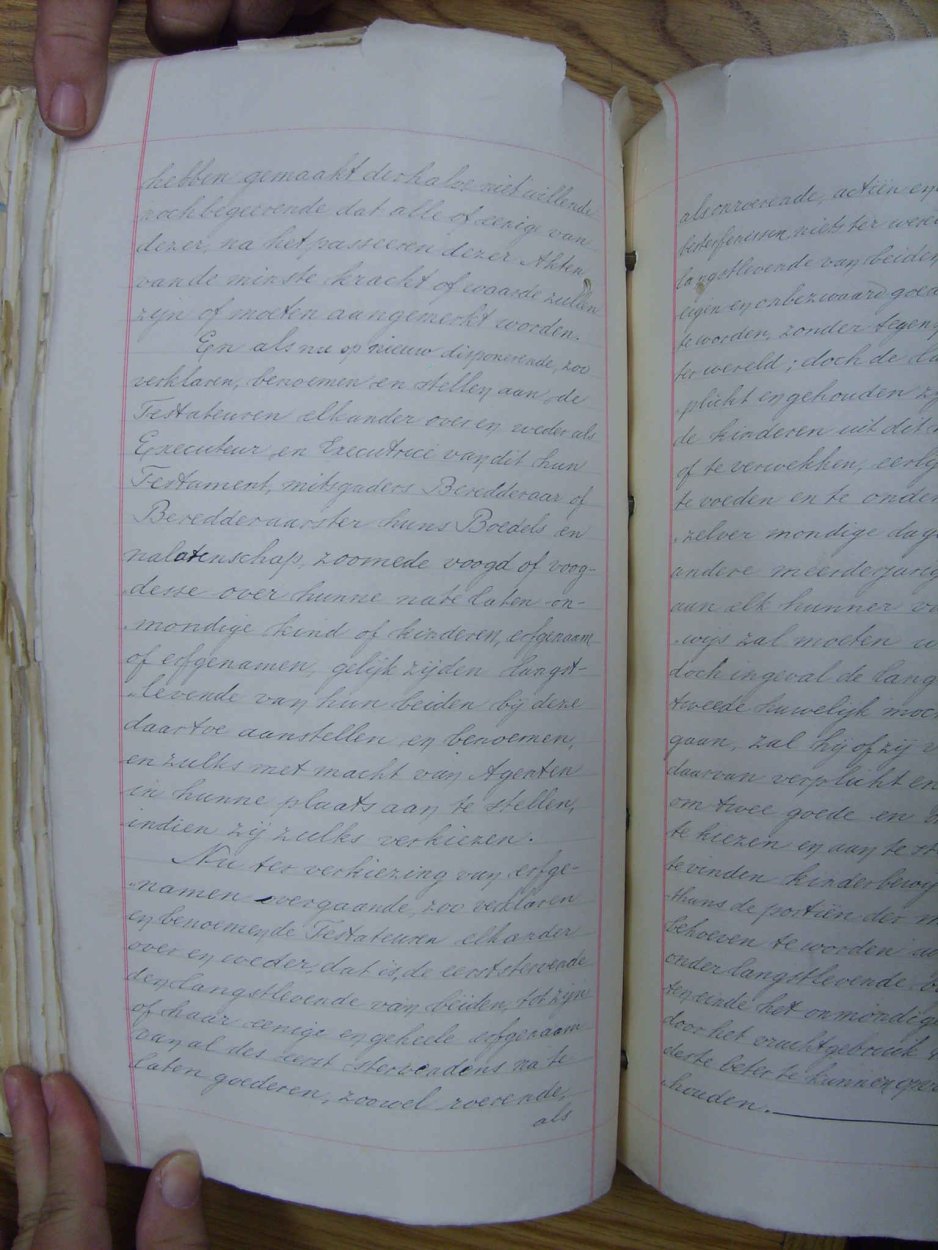 hebben gemaakt derhalve niet willende
noch begeerende dat alle of eenige van
dezer, na het passeeren dezer Akten
van de minste kracht of waarde zullen
zijn of moeten aangemerkt worden.
En als nu op nieuw disponerende, zoo
verklaren, benoemen en stellen aan de
Testateuren elkander over en weder als
Executeur en Executrice van dit hun
Testament, mitsgaders Beredderaar of
Beredderaarster huns Boedels en
nalatenschap, zoomede voogd of voog-
desse over hunne nate laten on-
mondige kind of kinderen, erfgenaam
of erfgenamen, gelijk zij den langst-
levende van hun beiden bij deze
daartoe aanstellen en benoemen,
en zulks met macht van Agenten
in hunne plaats aan te stellen,
indien zij zulks verkiezen.
Nu ter verkiezing van erfge-
namen overgaande, zoo verklaren
en benoemen de Testateuren elkander
over en weder, dat is, de eerststervende
den langstlevende van beiden, tot zijn
of haar eenige en geheele erfgenaam
van al des eerst stervendens na te
laten goederen, zoowel roerende,
als
als onroerende, actiën en
besterfenissen, niets ter were
langstlevende van beiden
eigen en onbezwaard goed
te worden, zonder tegen
ter wereld; doch de
plicht en gehouden
de kinderen uit dit
of te verwekken, eerlij
te voeden en te onder
zelver mondige dag
andere meerderjarig
aan elk hunner
wijs zal moeten
doch ingeval de lang
tweede huwelijk moc
gaan, zal hij of zij
daarvan verplicht en
om twee goede en
te kiezen en aan te st
te vinden kinderbewij
thans de portiën der
behoeven te worden
onder langstlevende
ten einde het onmondige
door het vruchtgebruik
deste beter te kunnen
houden.